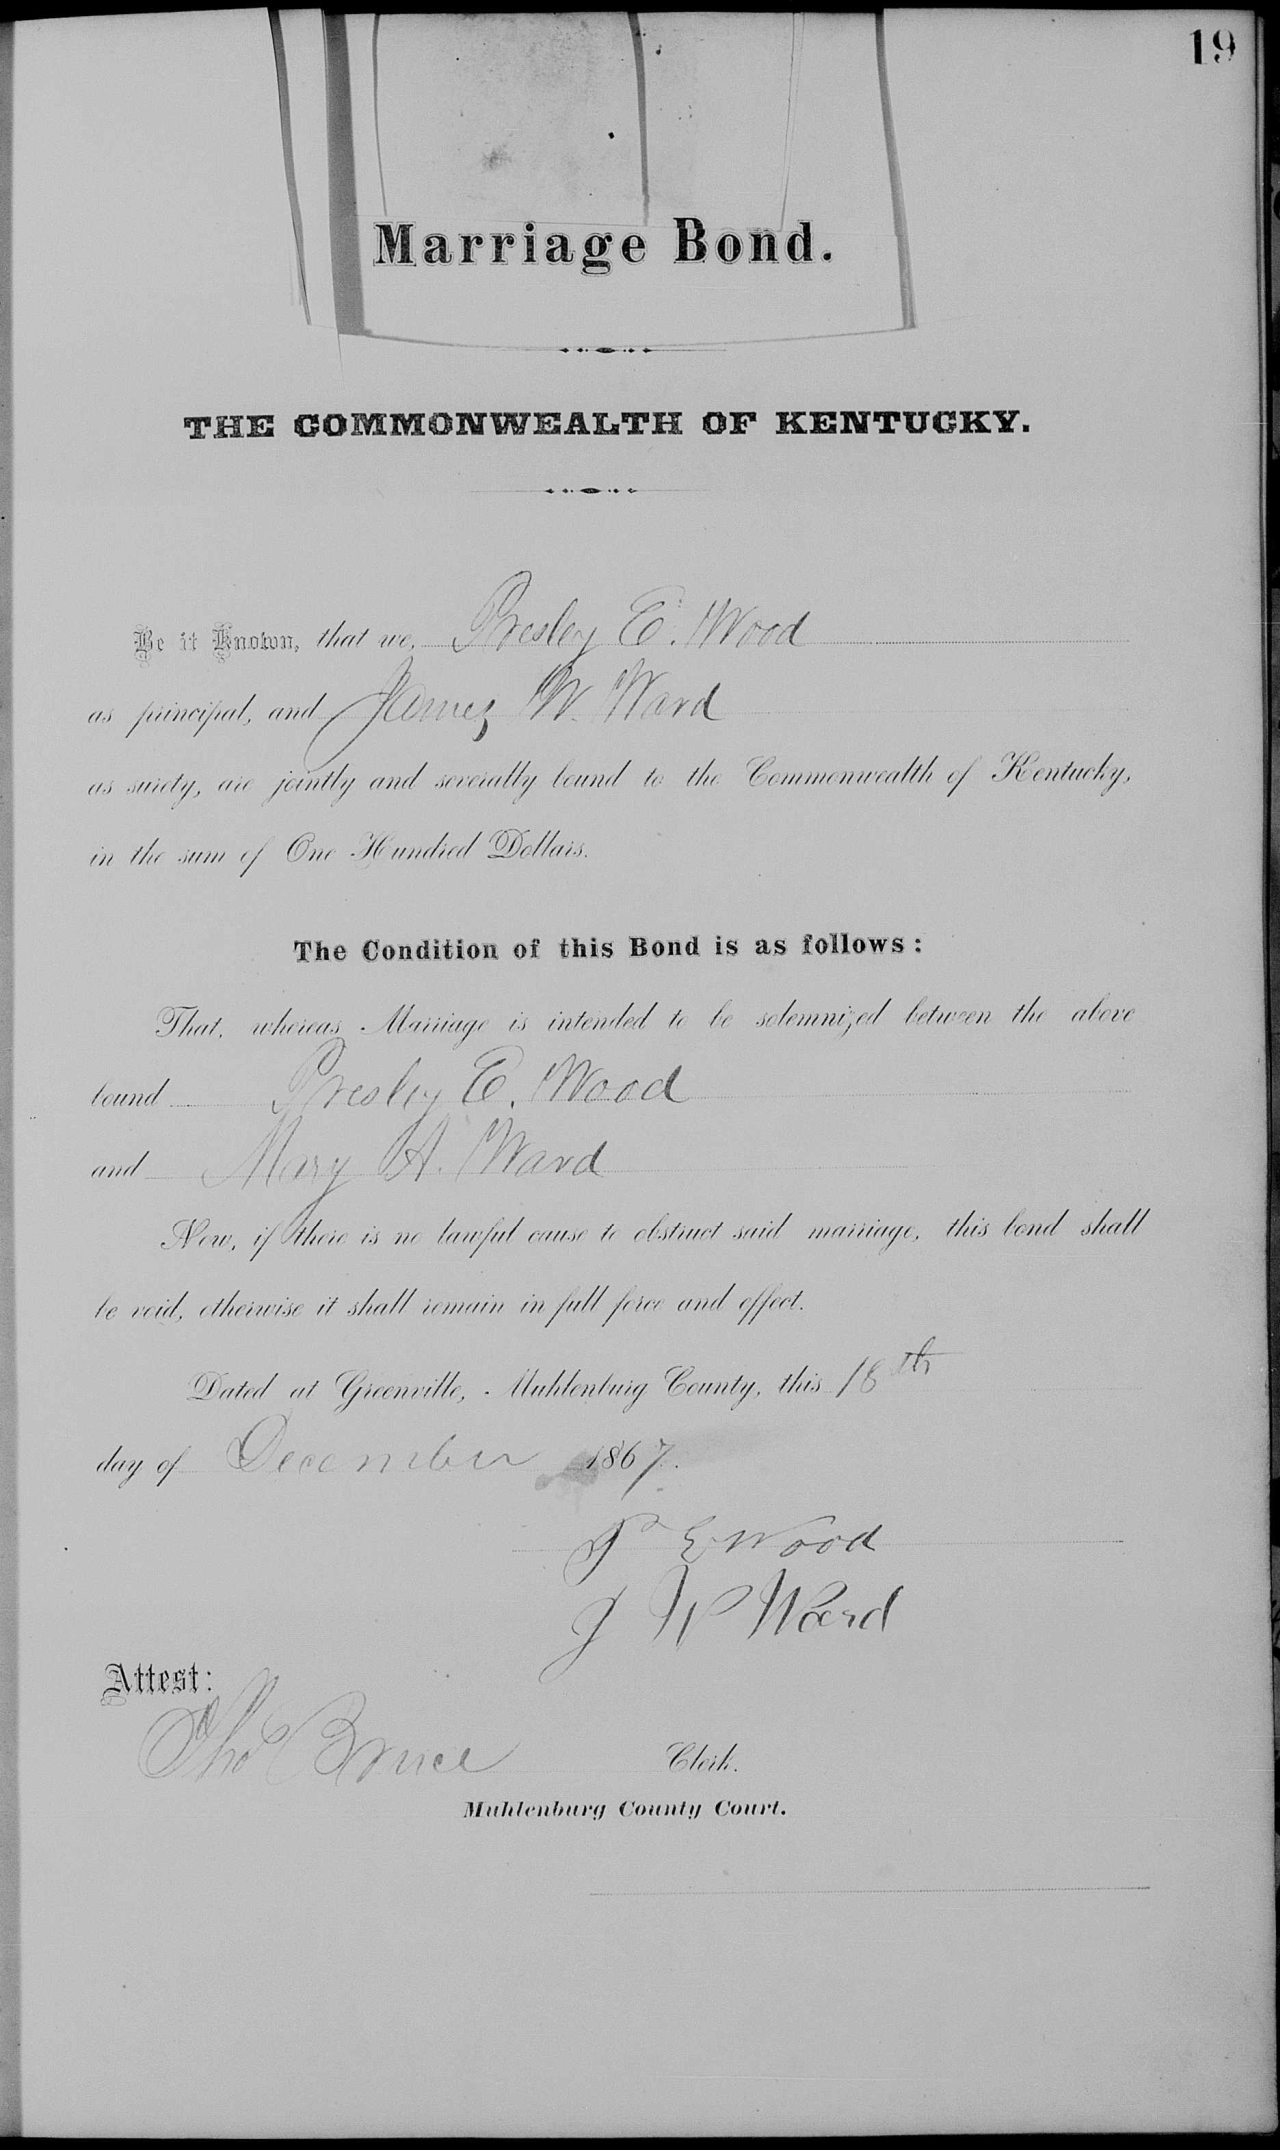 19
Marriage Bond.
THE COMMONWEALTH OF KENTUCKY.
Be it Known, that we, Presley E. Wood
as principal, and James W. Ward
as surety, are jointly and severally bound to the Commonwealth of Kentucky,
in the sum of One Hundred Dollars.
The Condition of this Bond is as follows:
That, whereas Marriage is intended to be solemnized between the above
bound Presley E. Wood
and Mary A. Ward
Now, if there is no lawful cause to obstruct said marriage, this bond shall
be void, otherwise it shall remain in full force and effect.
Dated at Greenville, Muhlenburg County, this 18th
day of December 1867.
P E Wood
J W Ward
Attest:
Tho Bruce Clerk.
Muhlenburg County Court.